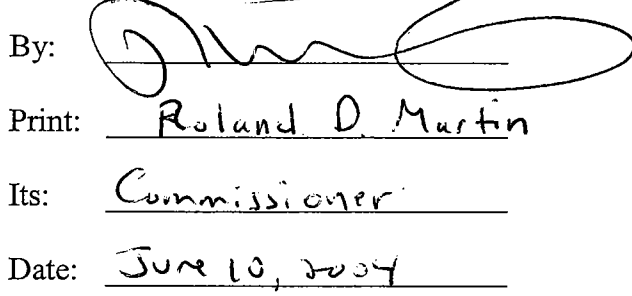 By:
Print: Roland D. Martin
Its: Commissioner
Date: June 10, 2004